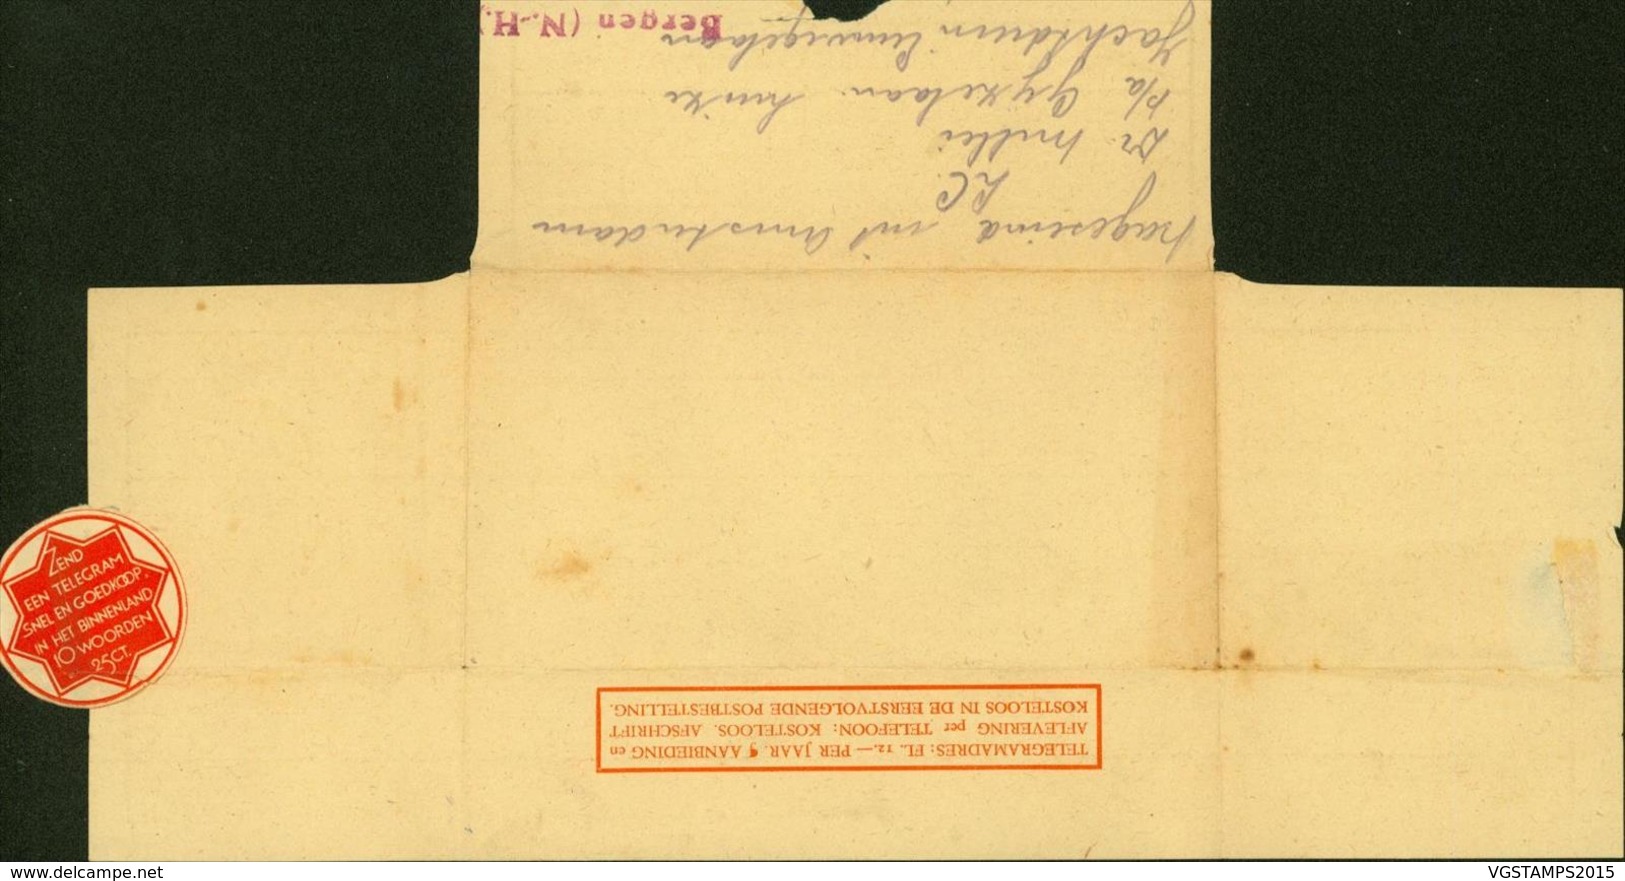 Bergen (N.-H.)
uit Amsterdam
LC
Dr.
p/a
ZEND
EEN TELEGRAM
SNEL EN GOEDKOOP.
IN HET BINNENLAND
10 WOORDEN
25CT.
TELEGRAMADRES: FL. 12.— PER JAAR. ¶ AANBIEDING en
AFLEVERING per TELEFOON: KOSTELOOS. AFSCHRIFT
KOSTELOOS IN DE EERSTVOLGENDE POSTBESTELLING.
delcampe.net
VGSTAMPS2015